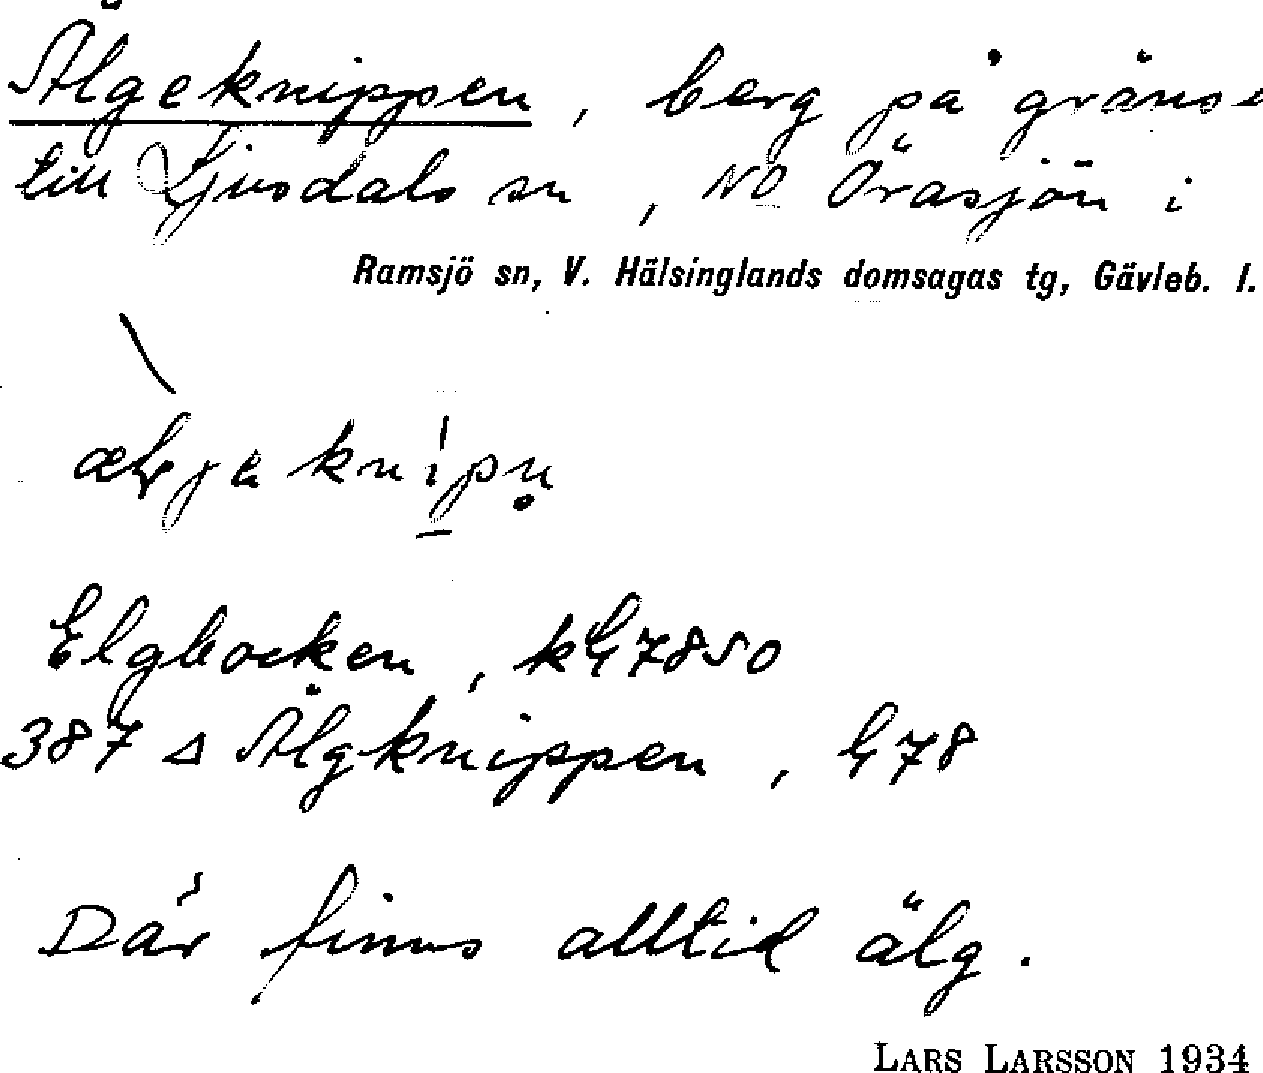 Älgeknippen, berg på gränse
till Ljusdals sn, NO Öråsjön i
Ramsjö sn, V. Hälsinglands domsagas tg, Gävleb. l.
Elgbocken, kG7850
387 Δ Älgknippen, G78
Där finns alltid älg.
LARS LARSSON 1934